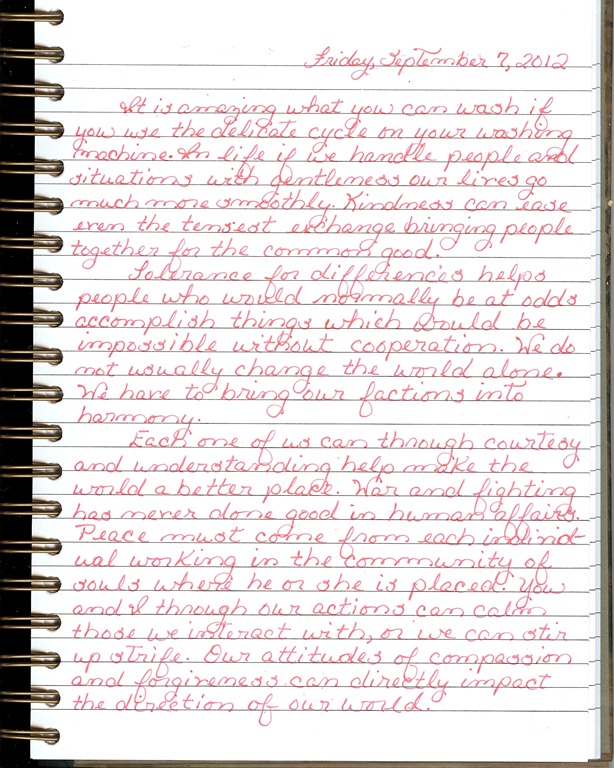 Friday, September 7, 2012
It is amazing what you can wash if
you use the delicate cycle on your washing
machine. In life if we handle people and
situations with gentleness our lives go
much more smoothly. Kindness can ease
even the tensest exchange bringing people
together for the common good.
Tolerance for differences helps
people who would normally be at odds
accomplish things which would be
impossible without cooperation. We do
not usually change the world alone.
We have to bring our factions into
harmony.
Each one of us can through courtesy
and understanding help make the
world a better place. War and fighting
has never done good in human affairs.
Peace must come from each individ-
ual working in the community of
souls where he or she is placed. You
and I through our actions can calm
those we interact with, or we can stir
up strife. Our attitudes of compassion
and forgiveness can directly impact
the direction of our world.